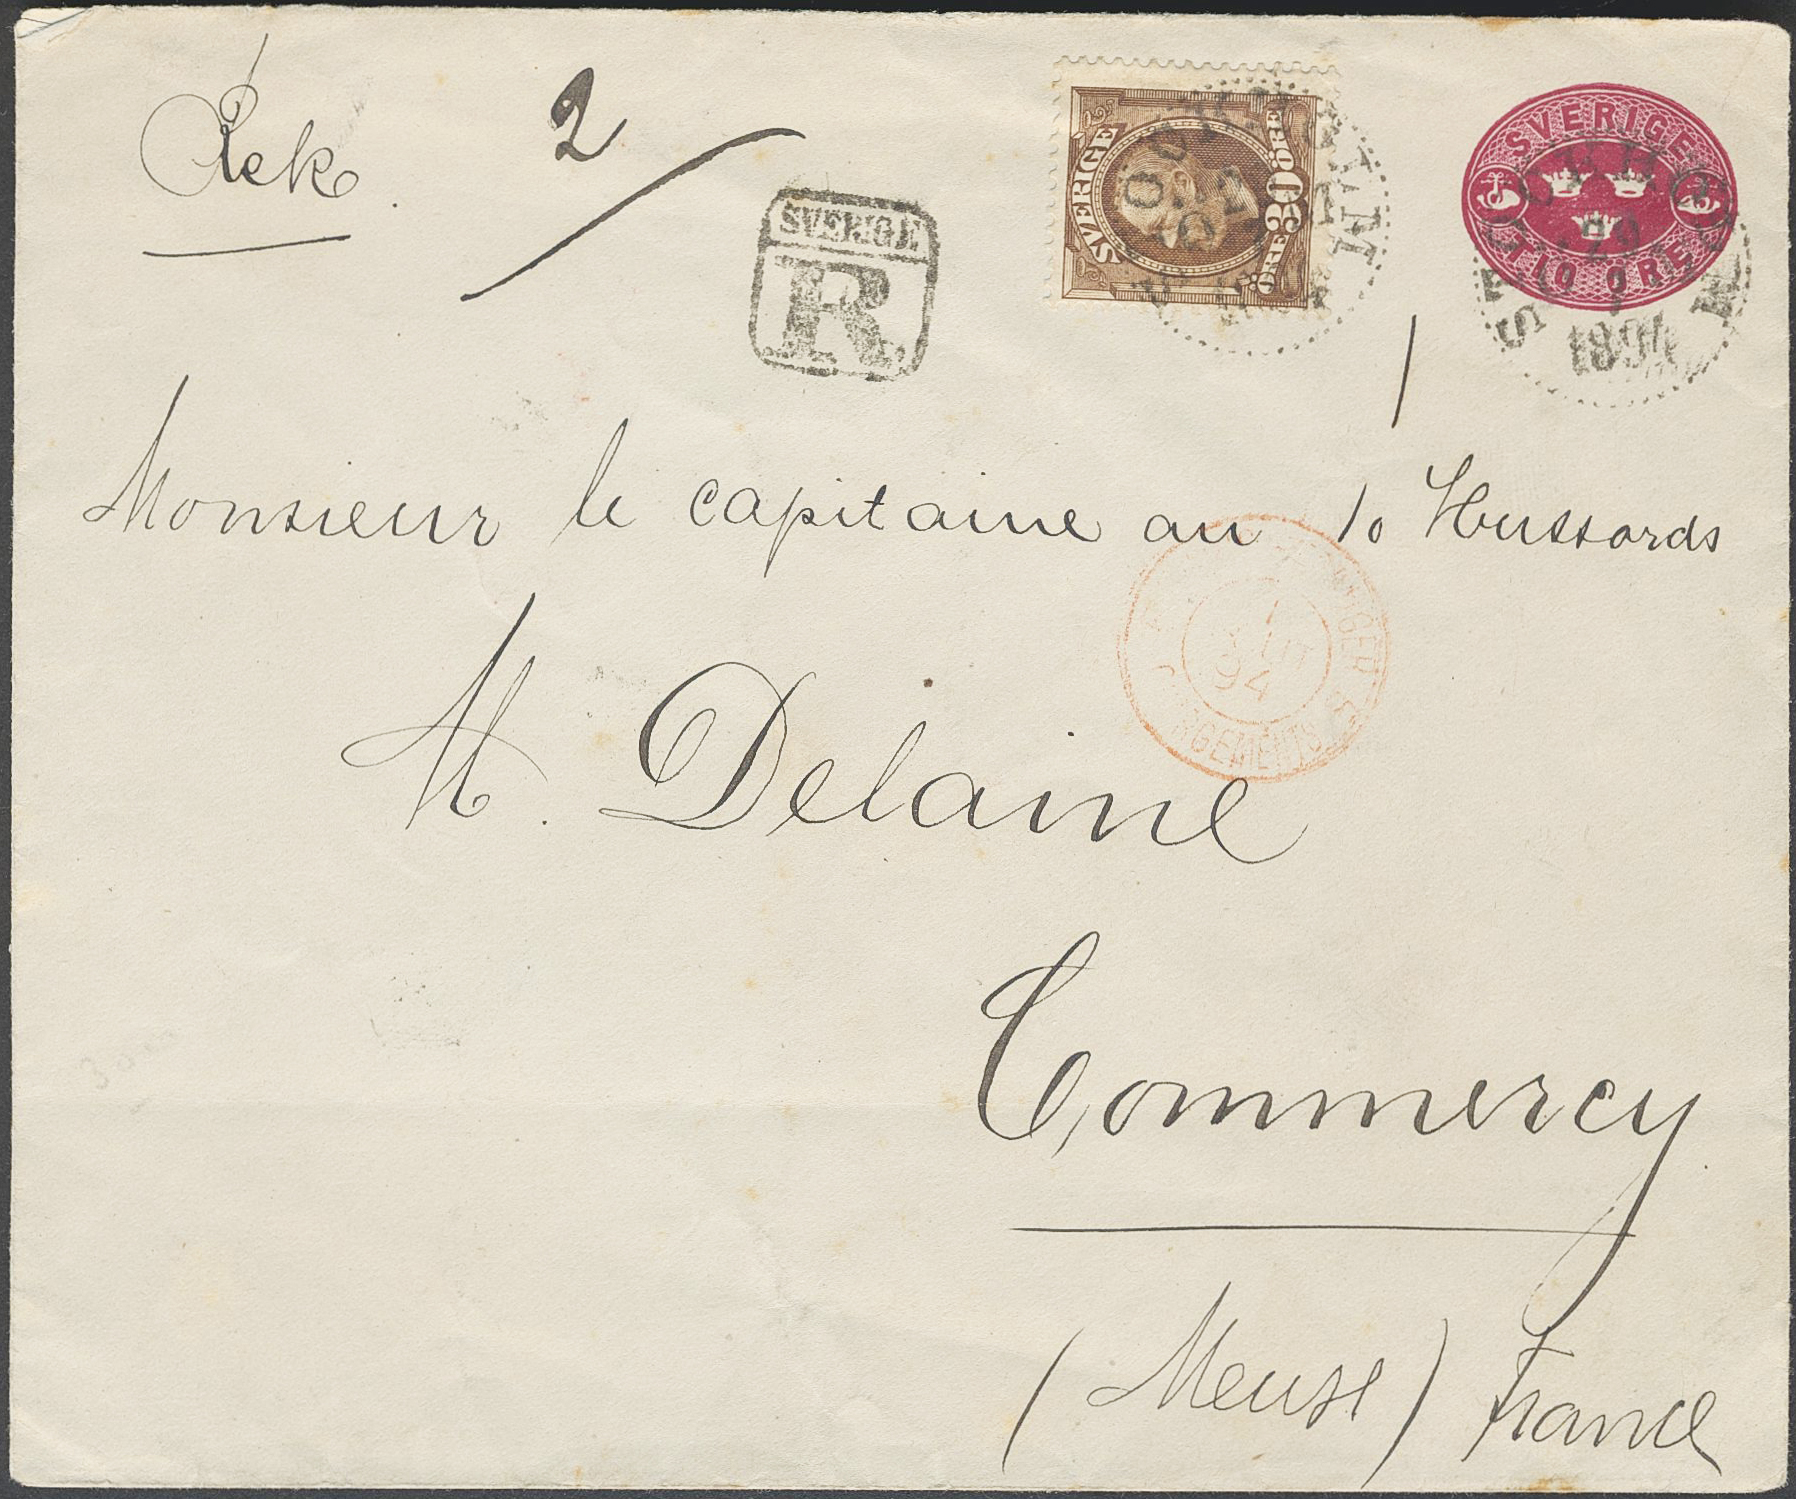 Rek.
2
SVERIGE
R.
SVERIGE
30 ÖRE ÖRE
SVERIGE
TIO ÖRE
STOCKHOLM
29
7
1894
Monsieur le capitaine au 10 Hussards
94
M. Delaine
Commercy
(Meuse) France